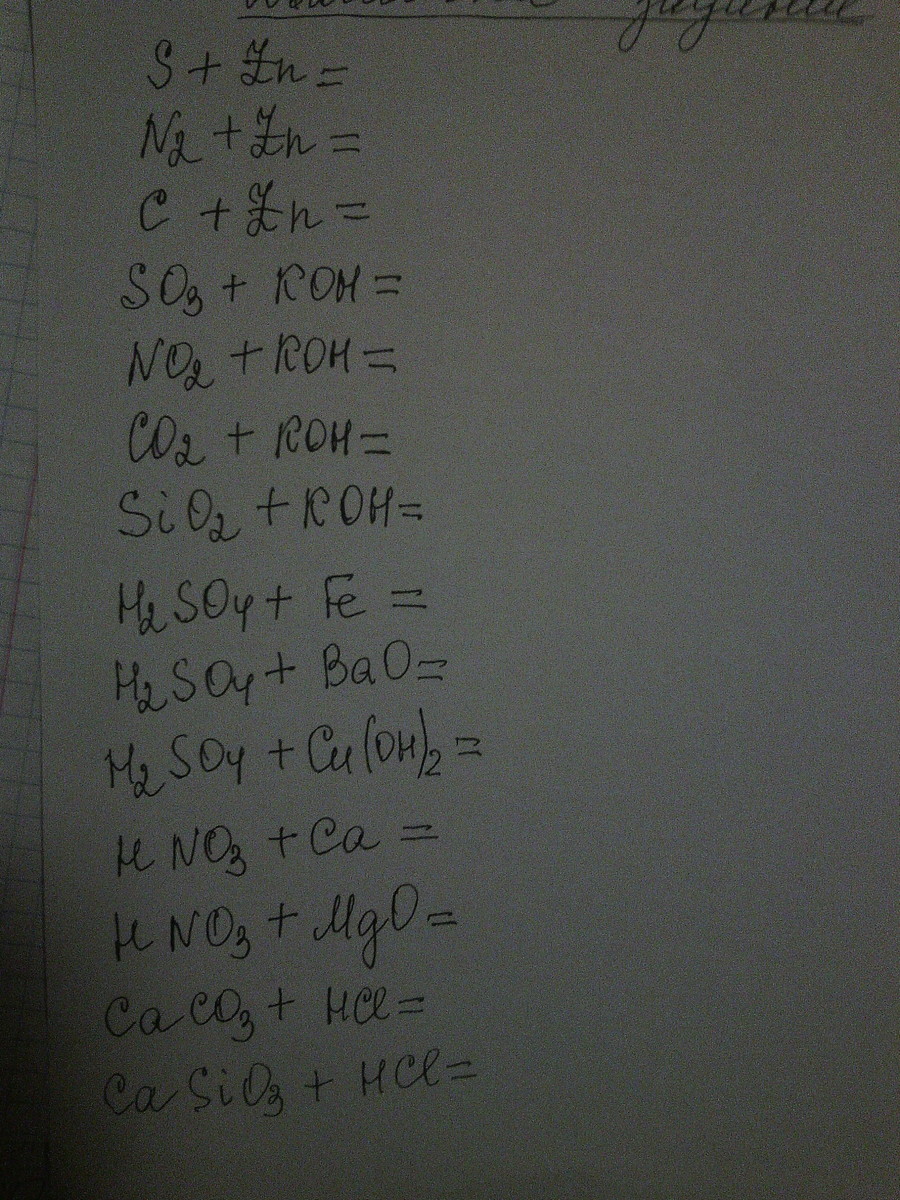 задание
S + Zn =
N2 + Zn =
C + Zn =
SO3 + KOH =
NO2 + KOH =
CO2 + KOH =
SiO2 + KOH =
H2SO4 + Fe =
H2SO4 + BaO =
H2SO4 + Cu(OH)2 =
HNO3 + Ca =
HNO3 + MgO =
CaCO3 + HCl =
CaSiO3 + HCl =